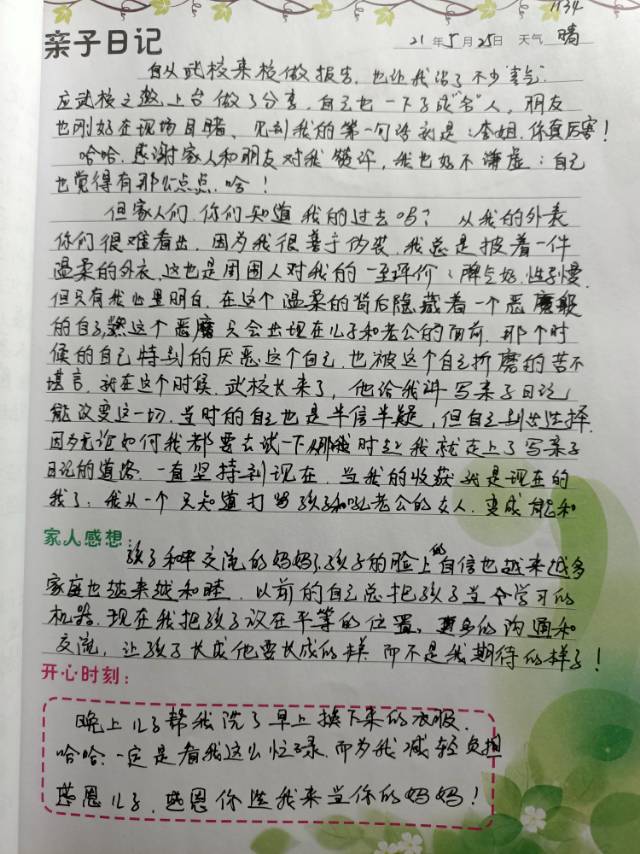 1134
亲子日记
21年5月25日 天气 晴
自从武校来校做报告，也让我沾了不少"喜气"
应武校之邀上台做了分享，自己也一下子成"名"人，朋友
也刚好在现场目睹、见到我的第一句话就是：李姐，你真厉害！
哈哈，感谢家人和朋友对我赞许，我也好不谦虚：自己
也觉得有那么点点，哈！
但家人们，你们知道我的过去吗？ 从我的外表
你们很难看出，因为我很善于伪装，我总是披着一件
温柔的外衣，这也是周围人对我的一至评价：脾气好，性子慢，
但只有我心里明白，在这个温柔的背后隐藏着一个恶魔般
的自己，这个恶魔只会出现在儿子和老公的面前，那个时
候的自己特别的厌恶这个自己，也被这个自己折磨的苦不
堪言，就在这个时候，武校长来了，他给我讲写亲子日记
能改变这一切，当时的自己也是半信半疑，但自己别出选择
因为无论如何我都要去试一下，那时起我就走上了写亲子
日记的道路，一直坚持到现在，当我的收获就是现在的
我了：我从一个只知道打骂孩子和吼老公的女人，变成能和
家人感想：
孩子和平交流的妈妈了，孩子的脸上的自信也越来越多
家庭也越来越和睦，以前的自己总把孩子当个学习的
机器，现在我把孩子放在平等的位置，更多的沟通和
交流，让孩子长成他要长成的样 而不是我期待的样子！
开心时刻：
晚上儿子帮我洗了早上换下来的衣服，
哈哈，一定是看我这么忙碌，而为我减轻负担
感恩儿子，感恩你选我来当你的妈妈！